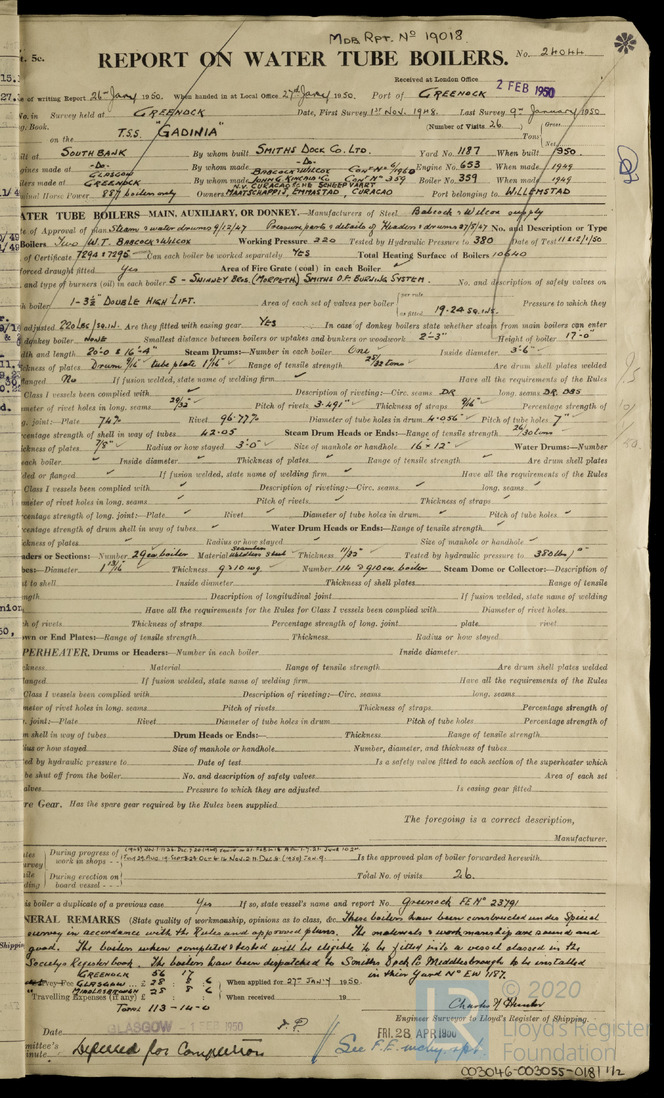 MDB RPT. No 19018.
t. 5c.
REPORT ON WATER TUBE BOILERS.
No. 24044
Received at London Office 2 FEB 1950
of writing Report 26th Jany 1950. When handed in at Local Office 27th Jany 1950. Port of GREENOCK
No. in Survey held at GREENOCK Date, First Survey 1st Nov. 1948. Last Survey 9th January 1950
Book. (Number of Visits 26.) Gross
on the T.S.S. "GADINIA" Tons Net
uilt at SOUTH BANK By whom built SMITHS DOCK CO. LTD. Yard No. 1187 When built 1950.
ngines made at -Do- By whom made -Do- Engine No. 653 When made 1949
oilers made at GLASGOW GREENOCK By whom made BABCOCK & WILCOX JOHN G. KINCAID & CO Boiler No. 359 When made 1949
minal Horse Power 887 boilers only Owners N.V. CURACAOSCHE SCHEEPVAART MAATSCHAPPIJ, EMMASTAD, CURACAO Port belonging to WILLEMSTAD
ATER TUBE BOILERS—MAIN, AUXILIARY, OR DONKEY.—Manufacturers of Steel Babcock & Wilcox supply
te of Approval of plan Steam & water drums 9/12/47 Pressure parts & details of Headers & drums 27/5/47 No. and Description or Type
Boilers Two W.T. BABCOCK & WILCOX Working Pressure 220 Tested by Hydraulic Pressure to 380 Date of Test 11 & 12/1/50
of Certificate 7294 & 7295 Can each boiler be worked separately YES Total Heating Surface of Boilers 10640
forced draught fitted Yes Area of Fire Grate (coal) in each Boiler ✓
and type of burners (oil) in each boiler 5 - SWINNEY BROS. (MORPETH) SMITHS O.F. BURNING SYSTEM. No. and description of safety valves on
h boiler 1 - 3½" DOUBLE HIGH LIFT. Area of each set of valves per boiler { per rule or fitted 19.24 SQ. INS. Pressure to which they
adjusted 220 LBS/SQ.IN. Are they fitted with easing gear YES In case of donkey boilers state whether steam from main boilers can enter
donkey boiler NONE Smallest distance between boilers or uptakes and bunkers or woodwork 2'-3" Height of boiler 17'-0"
dth and length 20'-0 & 16'-4" Steam Drums:—Number in each boiler One Inside diameter 3'-6"
ickness of plates Drum 9/16" tube plate 1 1/16" Range of tensile strength 28/32 tons Are drum shell plates welded
flanged No If fusion welded, state name of welding firm ✓ Have all the requirements of the Rules
Class I vessels been complied with ✓ Description of riveting:—Circ. seams DR long. seams DR. DBS
meter of rivet holes in long. seams 29/32" Pitch of rivets 3.491" Thickness of straps 9/16" Percentage strength of
g. joint:—Plate 74% Rivet 96.77% Diameter of tube holes in drum 4.056" Pitch of tube holes 7"
centage strength of shell in way of tubes 42.05 Steam Drum Heads or Ends:—Range of tensile strength 26/30 tons
ickness of plates 7/8" Radius or how stayed 3'-0" Size of manhole or handhole 16 × 12" Water Drums:—Number
each boiler Inside diameter ✓ Thickness of plates Range of tensile strength Are drum shell plates
ded or flanged ✓ If fusion welded, state name of welding firm ✓ Have all the requirements of the Rules
Class I vessels been complied with Description of riveting:—Circ. seams long. seams
meter of rivet holes in long. seams Pitch of rivets Thickness of straps
centage strength of long. joint:—Plate ✓ Rivet Diameter of tube holes in drum Pitch of tube holes ✓
centage strength of drum shell in way of tubes ✓ Water Drum Heads or Ends:—Range of tensile strength
ckness of plates Radius or how stayed Size of manhole or handhole ✓
aders or Sections:—Number 29 ea. boiler Material Thickness 11/32" Tested by hydraulic pressure to 380 lbs/□"
bes:—Diameter 1 13/16 Thickness 9 & 10 wg. Number Steam Dome or Collector:—Description of
nt to shell Inside diameter Thickness of shell plates Range of tensile
ngth Description of longitudinal joint If fusion welded, state name of welding
Have all the requirements for the Rules for Class I vessels been complied with Diameter of rivet holes
h of rivets Thickness of straps Percentage strength of long. joint plate rivet
own or End Plates:—Range of tensile strength Thickness Radius or how stayed
PERHEATER, Drums or Headers:—Number in each boiler Inside diameter
ckness Material Range of tensile strength Are drum shell plates welded
langed If fusion welded, state name of welding firm Have all the requirements of the Rules
Class I vessels been complied with Description of riveting:—Circ. seams long. seams
meter of rivet holes in long. seams Pitch of rivets Thickness of straps Percentage strength of
. joint:—Plate Rivet Diameter of tube holes in drum Pitch of tube holes Percentage strength of
m shell in way of tubes Drum Heads or Ends:— Thickness Range of tensile strength
ius or how stayed Size of manhole or handhole Number, diameter, and thickness of tubes
ted by hydraulic pressure to Date of test Is a safety valve fitted to each section of the superheater which
be shut off from the boiler No. and description of safety valves Area of each set
alves Pressure to which they are adjusted Is easing gear fitted
re Gear. Has the spare gear required by the Rules been supplied
The foregoing is a correct description,
Manufacturer.
During progress of work in shops
Is the approved plan of boiler forwarded herewith
During erection on board vessel
Total No. of visits 26.
is boiler a duplicate of a previous case Yes If so, state vessel's name and report No. Greenock FE No 23791
NERAL REMARKS (State quality of workmanship, opinions as to class, &c. These boilers have been constructed under Special
survey in accordance with the Rules and approved plans. The materials & workmanship are sound and
good. The boilers when completed & tested will be eligible to be fitted into a vessel classed in the
Society's Register book. The boilers have been despatched to Smiths Dock Co Middlesbrough to be installed
in their Yard No EW 1187.
GREENOCK 56 17
vey Fee GLASGOW 28 8 6 When applied for 27 JAN'Y 1950.
MIDDLESBROUGH 28 8 6
Travelling Expenses (if any) £ When received 19
TOTAL 113-14-0
Engineer Surveyor to Lloyd's Register of Shipping.
Date GLASGOW - 1 FEB 1950
FRI. 28 APR 1950
mittee's
inute Deferred for Completion
See F.E. mchy. rpt.
© 2020
LR
Lloyd's Register
Foundation
003046-003055-0181 1/2